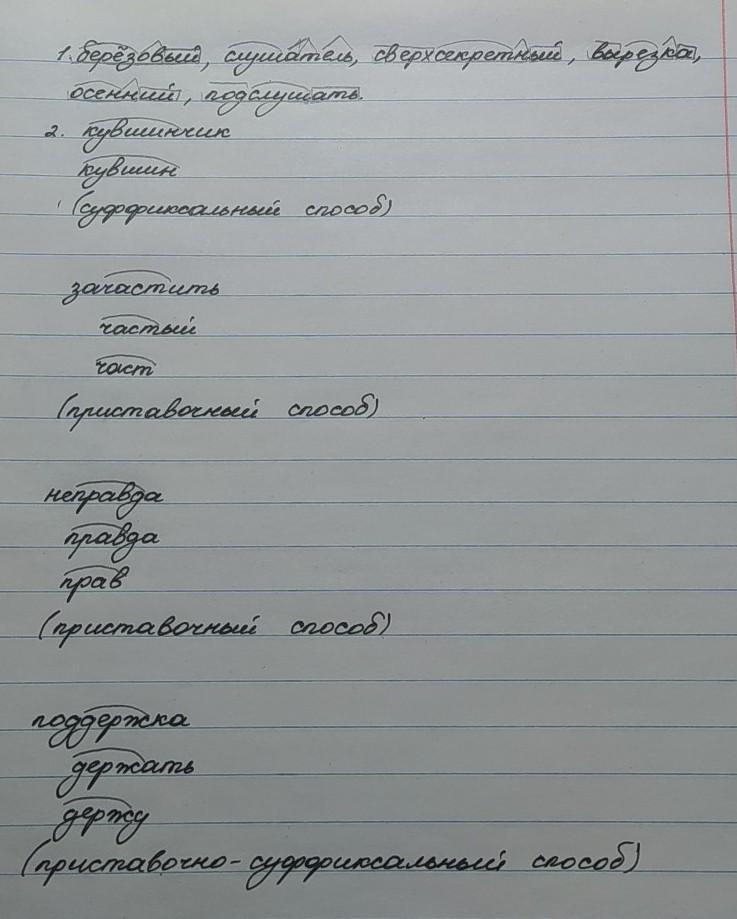 1. берёзовый, слушатель, сверхсекретный, вырезка,
осенний, подслушать.
2. кувшинчик
кувшин
(суффиксальный способ)
зачастить
частый
част
(приставочный способ)
неправда
правда
прав
(приставочный способ)
поддержка
держать
держу
(приставочно-суффиксальный способ)